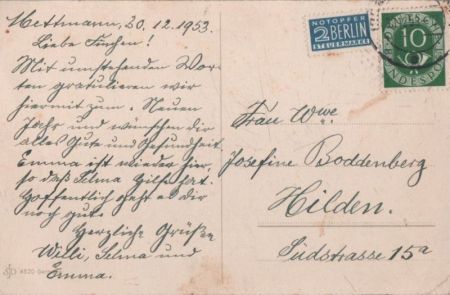 Mettmann, 20.12.1953.
Liebe Finchen!
Mit umstehenden Wor-
ten gratulieren wir
hiermit zum Neuen
Jahr und wünschen dir
alles Gute und Gesundheit.
Emma ist wieder hier,
so daß Selma Hilfe hat.
Hoffentlich geht es dir
noch gut.
Herzliche Grüße
Willi, Selma und
Emma.
NOTOPFER
2 BERLIN
STEUERMARKE
10
DEUTSCHE
BUNDESPOST
Frau Wwe.
Josefine Boddenberg
Hilden.
Südstrasse 15a
4820